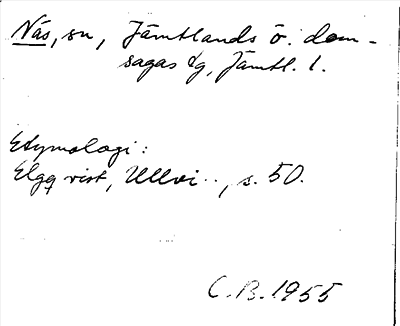 Näs, sn, Jämtlands ö. dom-
sagas tg, Jämtl. l.
Etymologi:
Elgqvist, Ullvi.., s. 50.
C.B. 1955